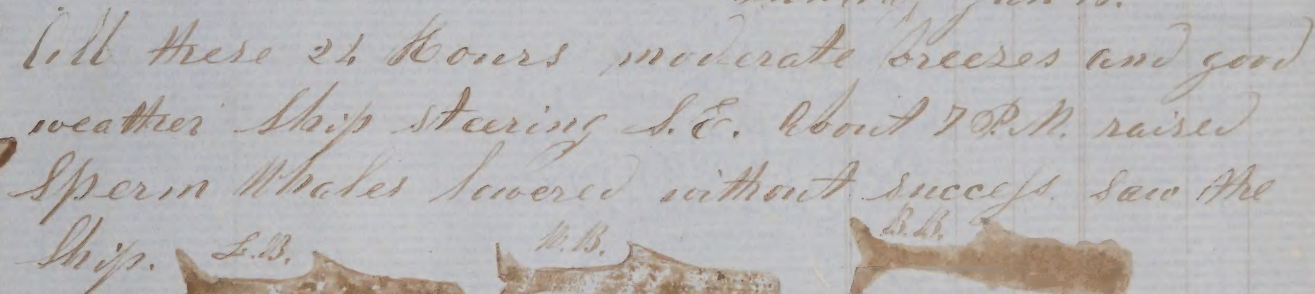 All these 24 Hours moderate breezes and good
weather Ship steering S.E. About 7 P.M. raised
Sperm Whales lowered without success. Saw the
Ship. L.B. W.B. B.B.